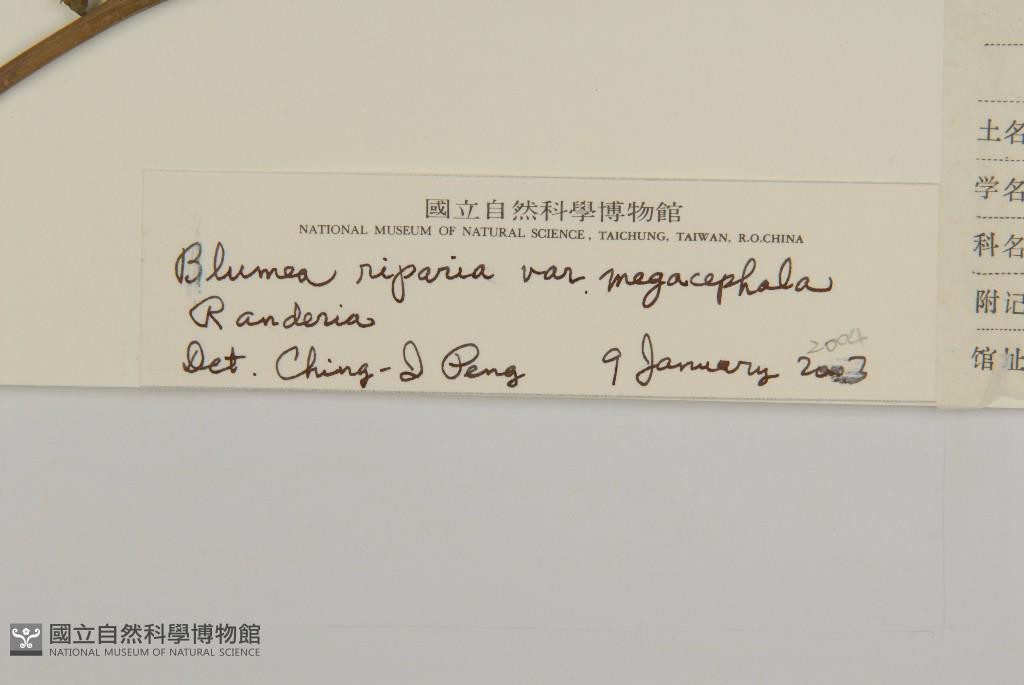 國立自然科學博物館
NATIONAL MUSEUM OF NATURAL SCIENCE, TAICHUNG, TAIWAN, R.O.CHINA
Blumea riparia var. megacephala
Randeria
2004
Det. Ching-I Peng 9 January 2003
土名
学名
科名
附记
馆址
國立自然科學博物館
NATIONAL MUSEUM OF NATURAL SCIENCE